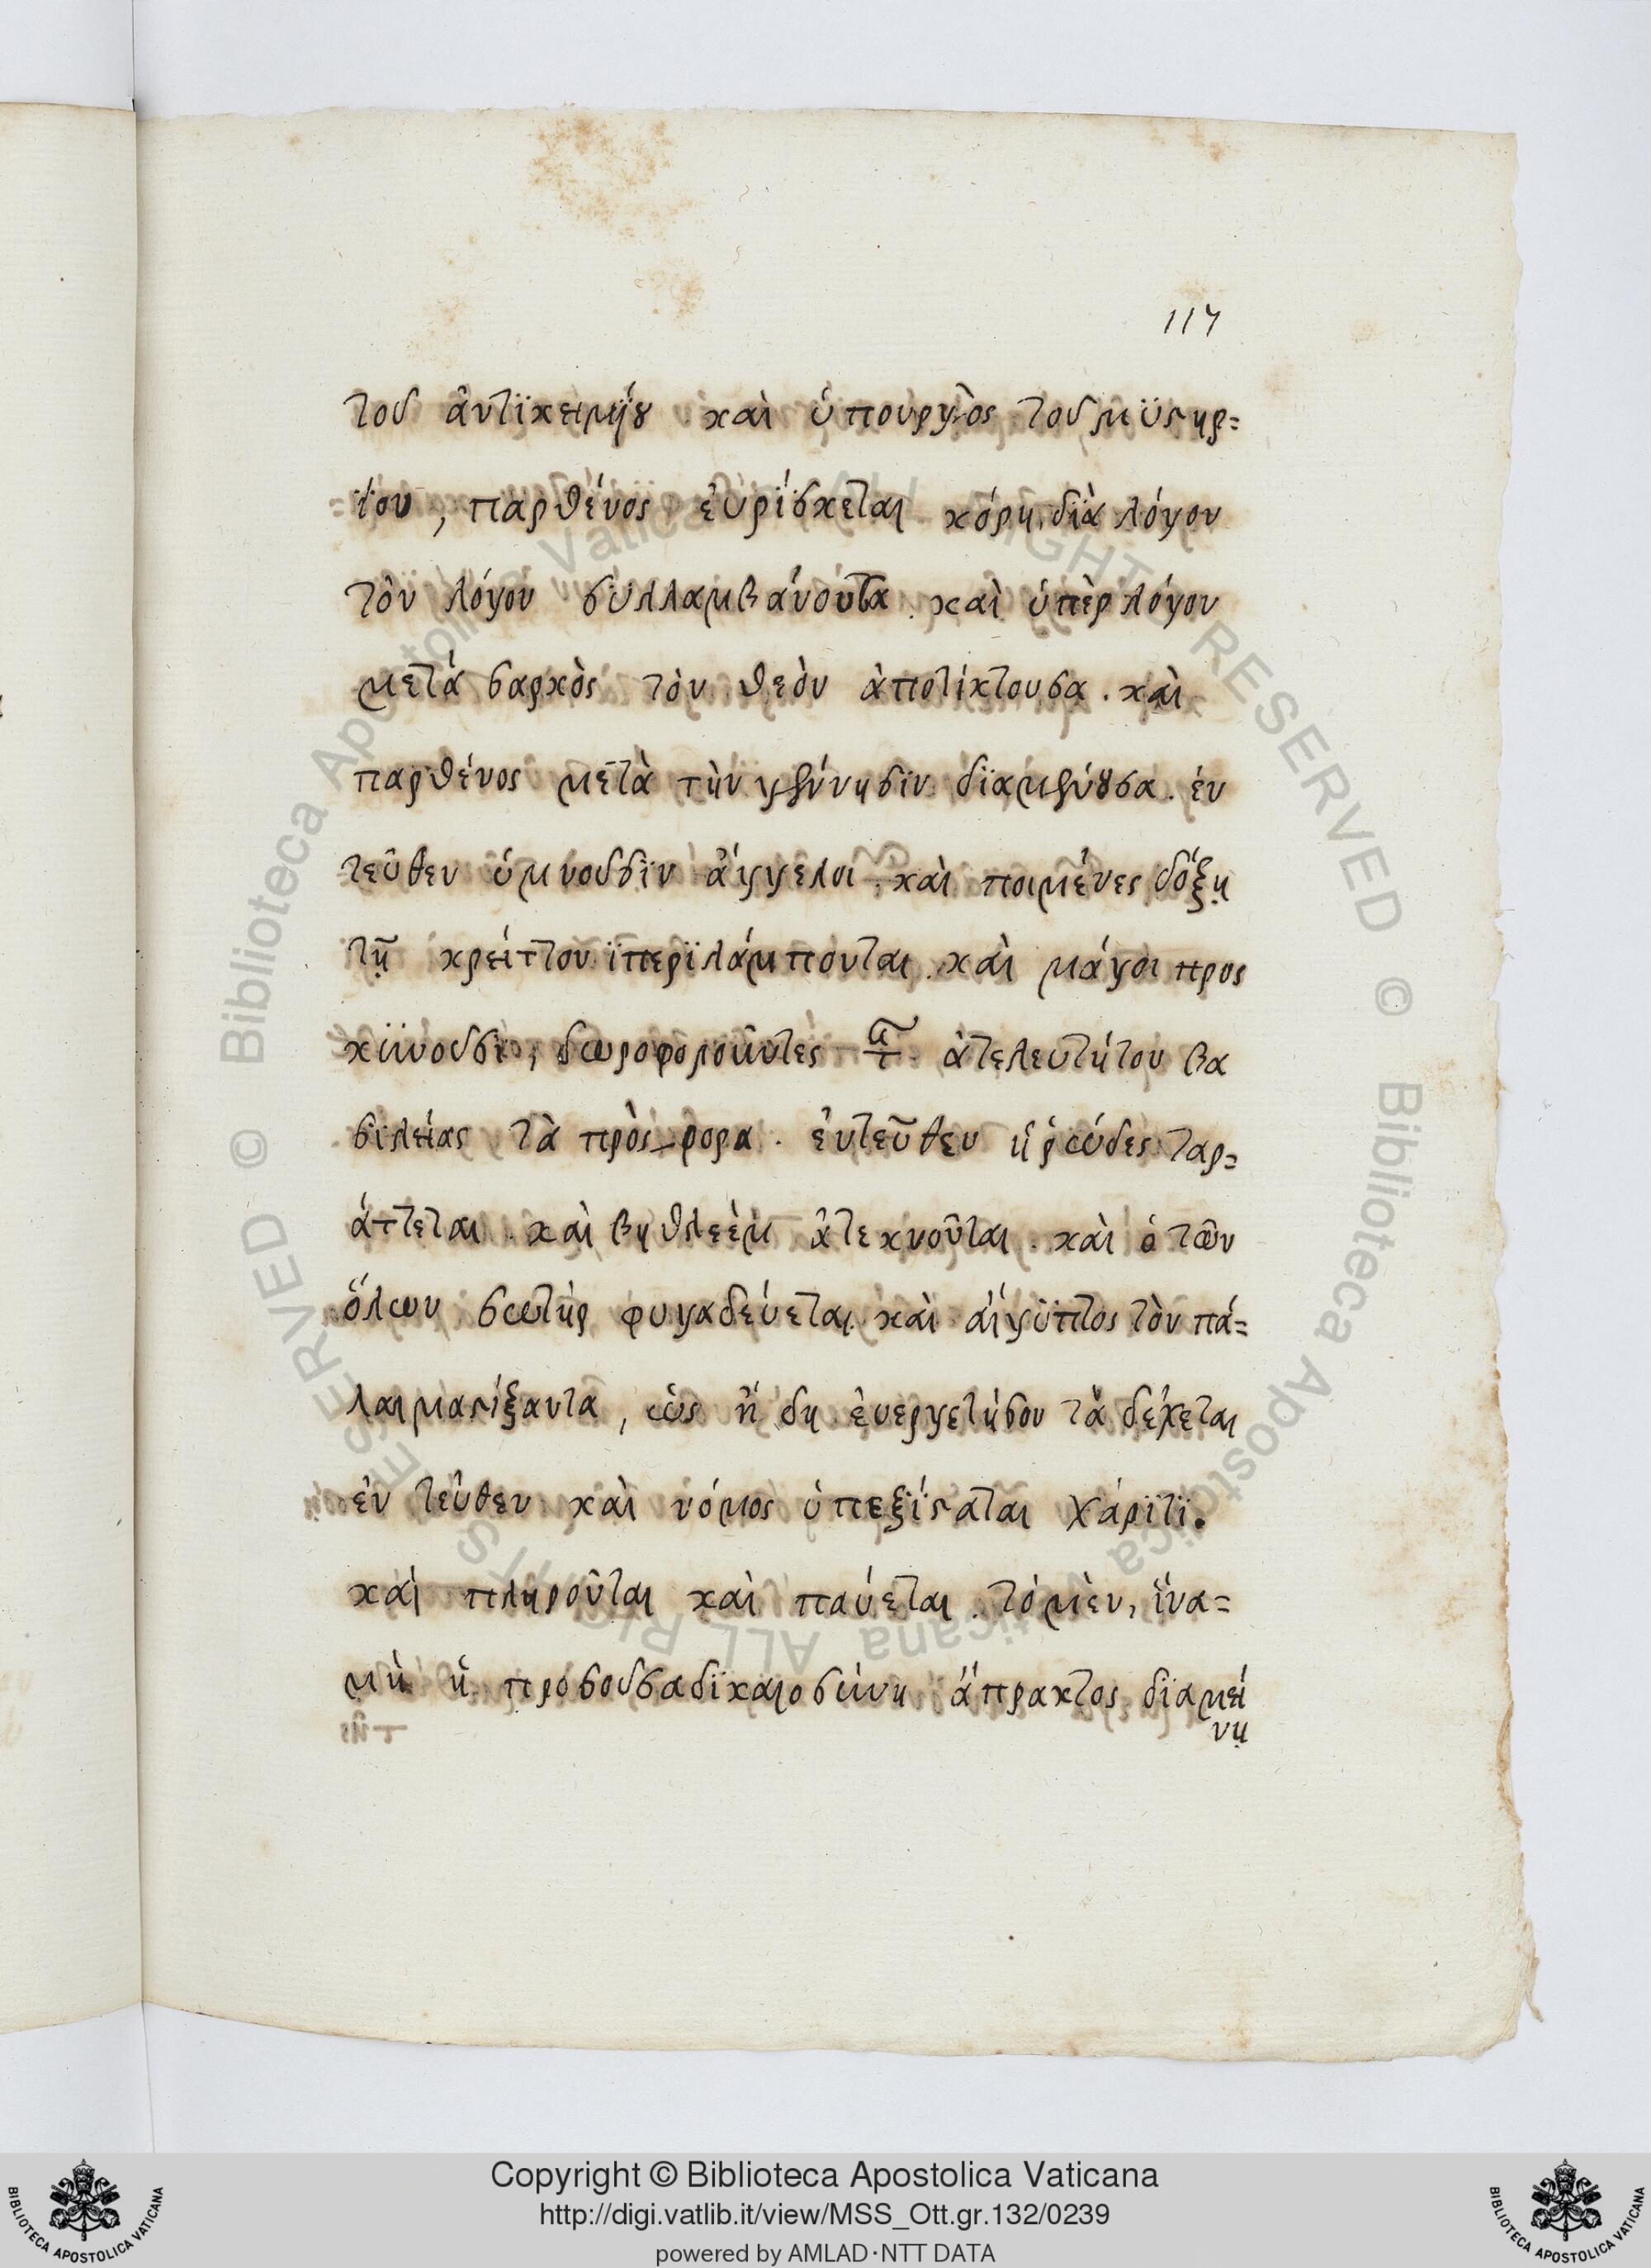 117
τοῦ ἀντϊκειμένου καὶ ὑπουργὸς τοῦ μϋστηρ=
ίου, παρθένος εὑρίσκεται κόρη, διὰ λόγου
τὸν λόγον συλλαμβάνουσα. καὶ ὑπὲρ λόγον
μετά σαρκὸς τὸν θεὸν ἀποτίκτουσα. καὶ
παρθένος μετὰ τὴν γέννησϊν δϊαμένουσα. ἐν
τεῦθεν ὑμνοῦσϊν ἄγγελοι. καὶ ποιμένες δόξῃ
τῇ κρείττονϊ περϊλάμπονται. καὶ μάγοι προς
κϋνοῦσι, δωροφοροῦντες τῆς ἀτελευτήτου βα
σιλείας τὰ πρὸς φορα. ἐντεῦθεν ἡρώδες ταρ=
άττεται. καὶ βηθλεὲμ ἀτεκνοῦται. καὶ ὁ τῶν
ὅλων σωτήρ φυγαδεύεται. καὶ αἴγϋπτος τὸν πά=
λαι μαστίξαντα, ὡς ἤ δη ἐυεργετήσον τὰ δέχεται
ἐν τεῦθεν καὶ νόμος ὑπεξίσταται χάρϊτϊ.
καὶ πληροῦται καὶ παύεται. τό μὲν, ἵνα=
μὴ ἡ προσοῦσα δϊκαιοσύνη ἄπρακτος δϊαμεί
νῃ
Copyright © Biblioteca Apostolica Vaticana
http://digi.vatlib.it/view/MSS_Ott.gr.132/0239
powered by AMLAD·NTT DATA
BIBLIOTECA APOSTOLICA VATICANA
BIBLIOTECA APOSTOLICA VATICANA
© Biblioteca Apostolica Vaticana ALL RIGHTS RESERVED
© Biblioteca Apostolica Vaticana ALL RIGHTS RESERVED